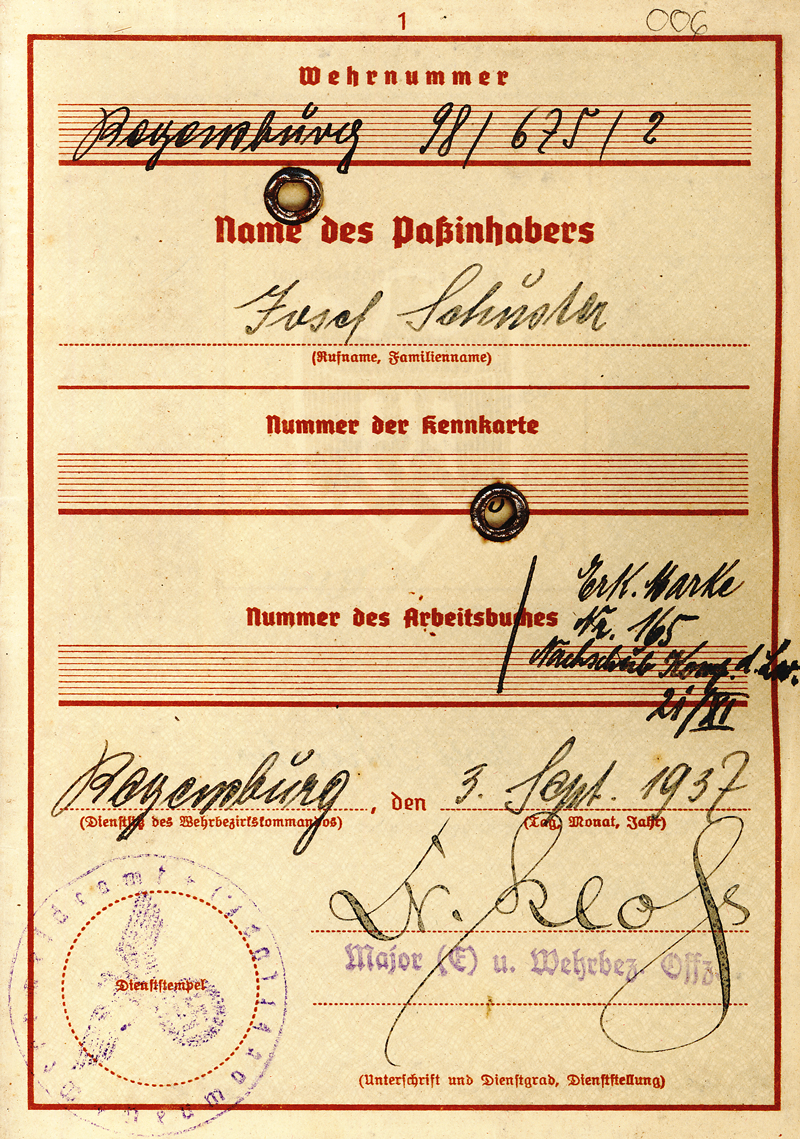 1
006
Wehrnummer
Regensburg 98/675/2
Name des Paßinhabers
Josef Schuster
(Rufname, Familienname)
Nummer der Kennkarte
Nummer des Arbeitsbuches
Erk. Marke
Nr. 165
Nachschub Komp. d. Lw.
21/XI
Regensburg, den 3. Sept. 1937
(Dienstsitz des Wehrbezirkskommandos) (Tag, Monat, Jahr)
Major (E) u. Wehrbez. Offz.
Dienststempel
(Unterschrift und Dienstgrad, Dienststellung)